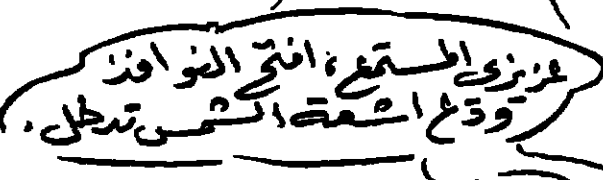 عزيزي المستمع، افتح النوافذ
ودع اشعة الشمس تدخل.